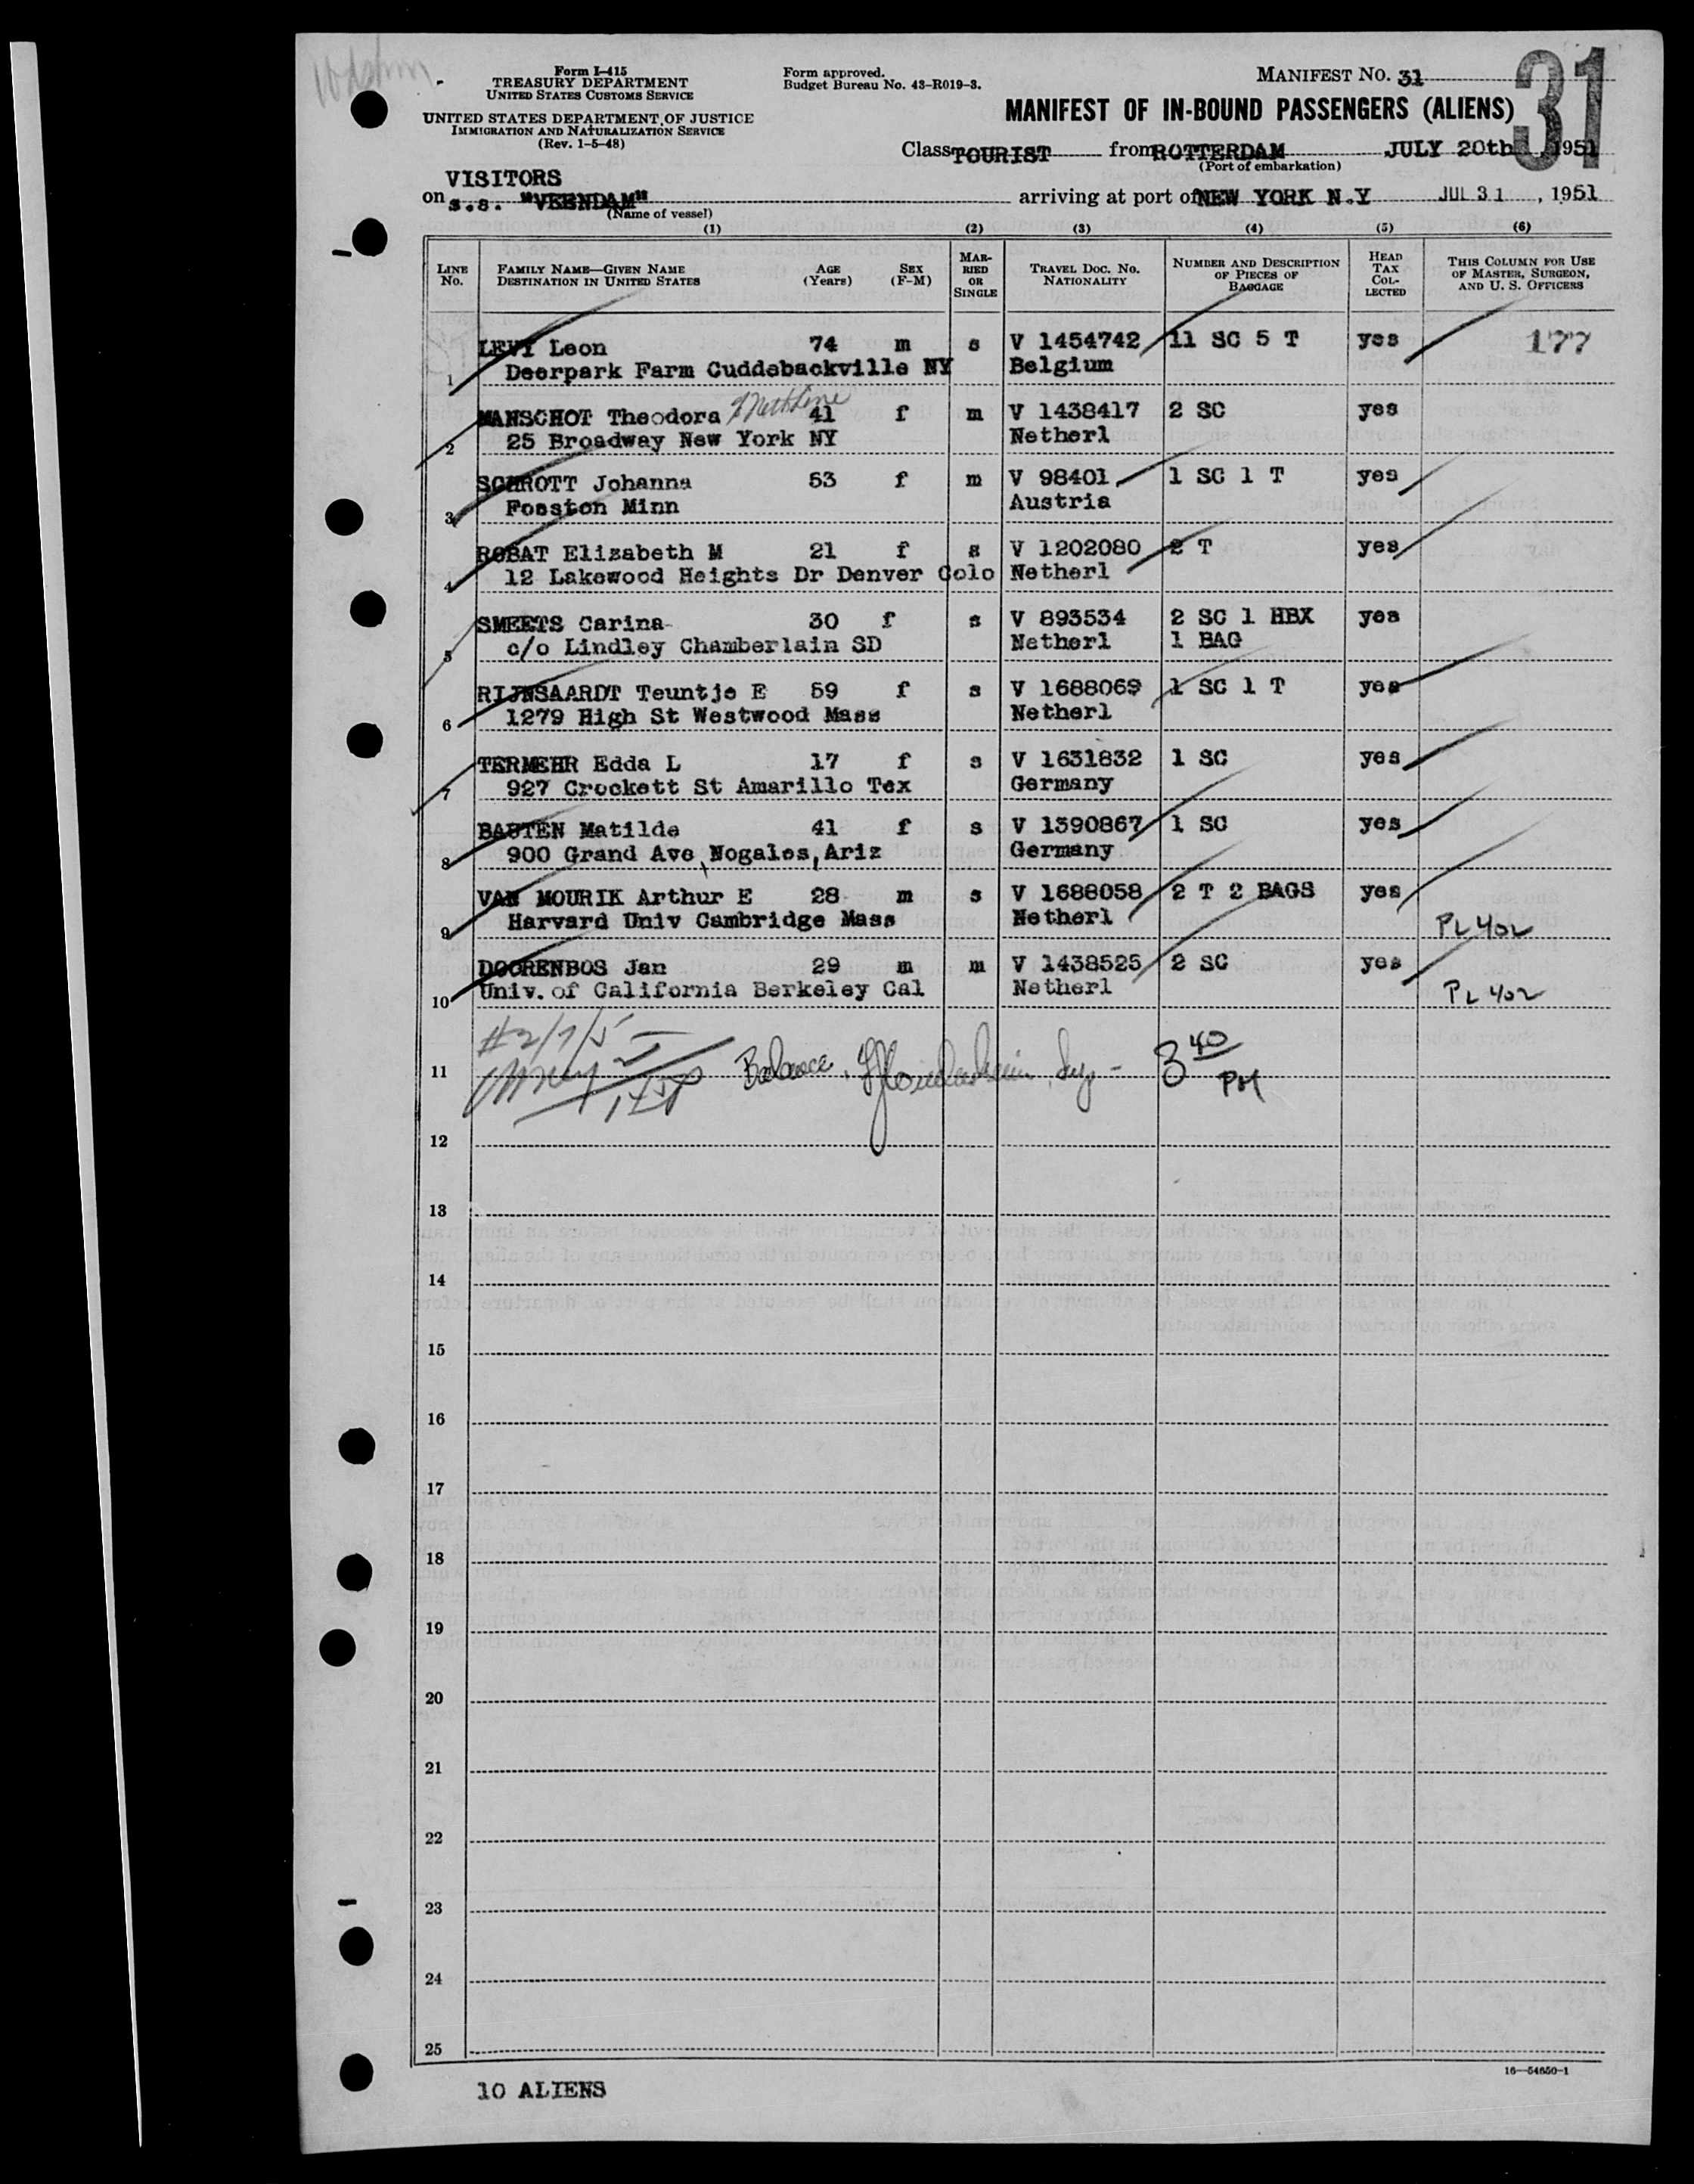 Form I-415
TREASURY DEPARTMENT
UNITED STATES CUSTOMS SERVICE
UNITED STATES DEPARTMENT OF JUSTICE
IMMIGRATION AND NATURALIZATION SERVICE
(Rev. 1-5-48)
Form approved.
Budget Bureau No. 43-R019-3.
MANIFEST NO. 31
31
MANIFEST OF IN-BOUND PASSENGERS (ALIENS)
Class TOURIST from ROTTERDAM JULY 20th, 1951
(Port of embarkation)
VISITORS
on s.s. "VEENDAM" arriving at port of NEW YORK N.Y JUL 31, 1951
(Name of vessel)
(1) (2) (3) (4) (5) (6)
LINE No. FAMILY NAME—GIVEN NAME DESTINATION IN UNITED STATES AGE (Years) SEX (F-M) MARRIED OR SINGLE TRAVEL DOC. NO. NATIONALITY NUMBER AND DESCRIPTION OF PIECES OF BAGGAGE HEAD TAX COLLECTED THIS COLUMN FOR USE OF MASTER, SURGEON, AND U. S. OFFICERS
LEVY Leon 74 m s V 1454742 11 SC 5 T yes 177
1 Deerpark Farm Cuddebackville NY Belgium
MANSCHOT Theodora 41 f m V 1438417 2 SC yes
2 25 Broadway New York NY Netherl
SCHROTT Johanna 53 f m V 98401 1 SC 1 T yes
3 Fosston Minn Austria
ROBAT Elizabeth M 21 f s V 1202080 2 T yes
4 12 Lakewood Heights Dr Denver Colo Netherl
SMEETS Carina 30 f s V 893534 2 SC 1 HBX yes
5 c/o Lindley Chamberlain SD Netherl 1 BAG
RIJNSAARDT Teuntje E 59 f s V 1688069 1 SC 1 T yes
6 1279 High St Westwood Mass Netherl
TERMEHR Edda L 17 f s V 1631832 1 SC yes
7 927 Crockett St Amarillo Tex Germany
BAUTEN Matilde 41 f s V 1390867 1 SC yes
8 900 Grand Ave, Nogales, Ariz Germany
VAN MOURIK Arthur E 28 m s V 1688058 2 T 2 BAGS yes
9 Harvard Univ Cambridge Mass Netherl PL 402
DOORENBOS Jan 29 m m V 1438525 2 SC yes
10 Univ. of California Berkeley Cal Netherl PL 402
11 Balance. 3 40 PM
12
13
14
15
16
17
18
19
20
21
22
23
24
25
16—54650-1
10 ALIENS